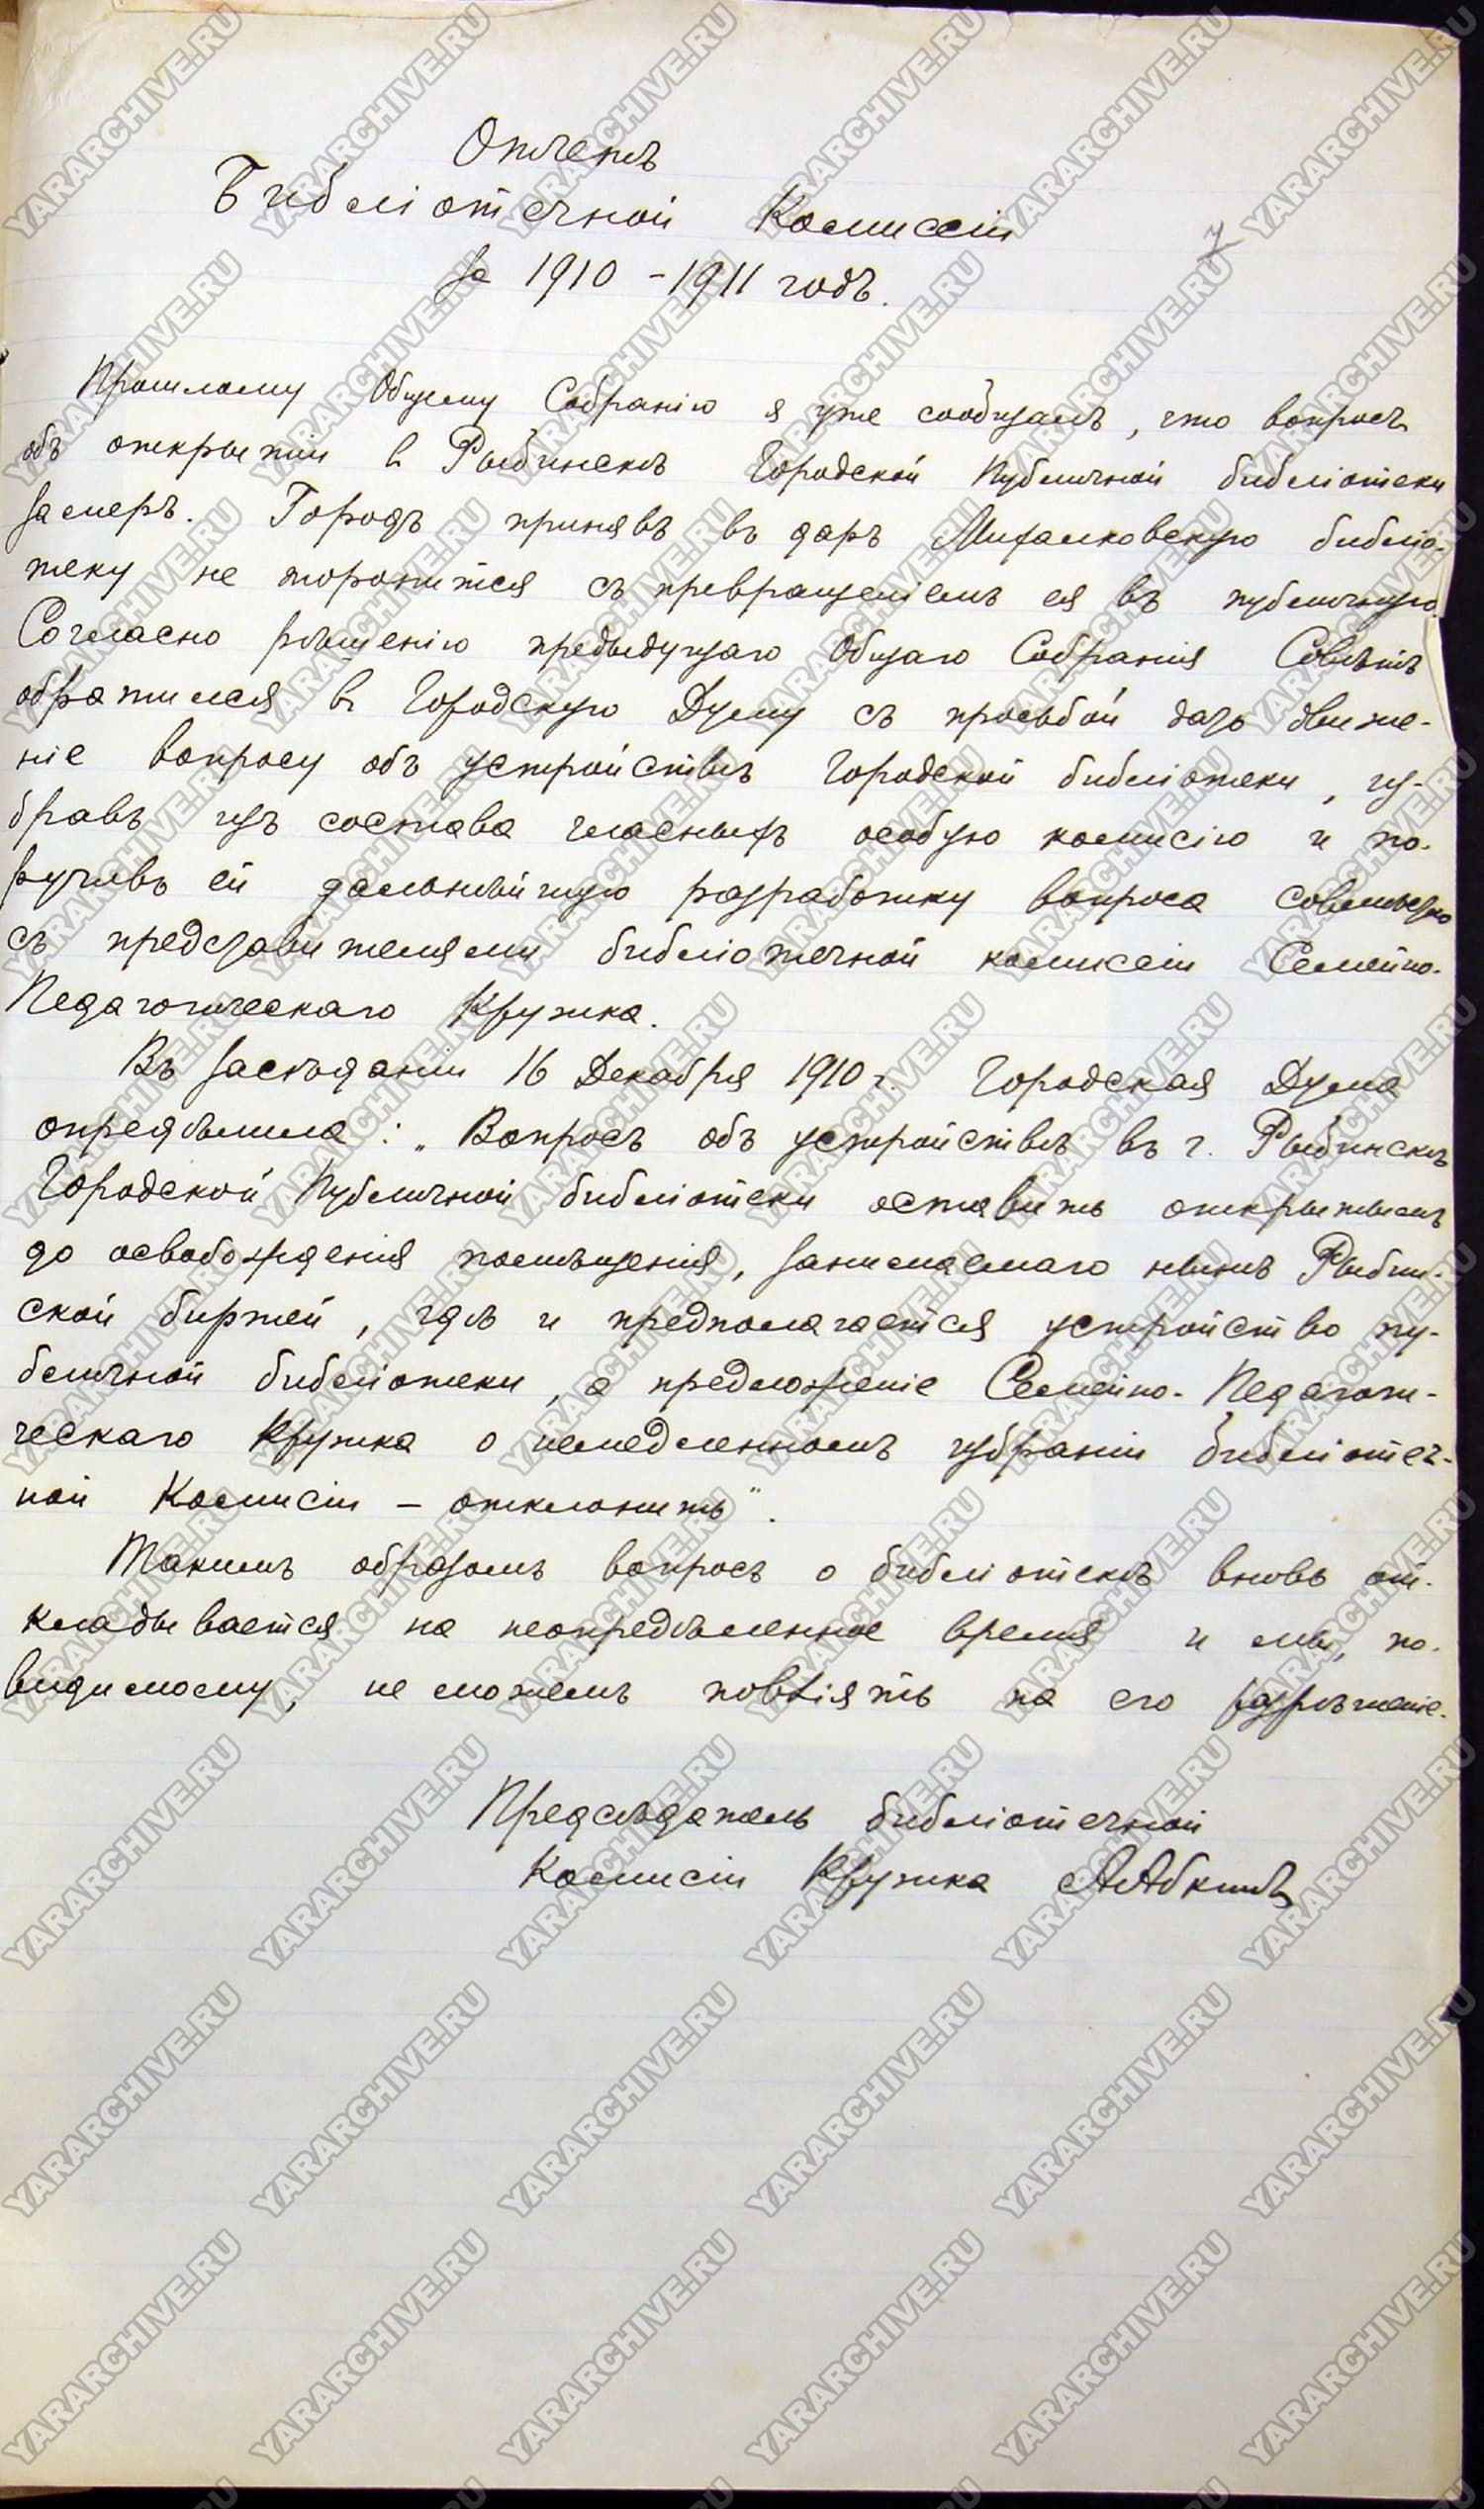 Отчетъ
Библіотечной Комиссіи
за 1910 - 1911 годъ.
7
Прошлому Общему Собранію я уже сообщалъ, что вопросъ
объ открытіи в Рыбинскѣ Городской Публичной библіотеки
замеръ. Городъ принявъ въ даръ Михалковскую библіо-
теку не торопится съ превращеніемъ ея въ публичную.
Согласно рѣшенію предыдущаго Общаго Собранія Совѣтъ
обратился в Городскую Думу съ просьбой дать движе-
ніе вопросу объ устройствѣ Городской библіотеки, из-
бравъ изъ состава гласныхъ особую комисію и по-
ручивъ ей дальнѣйшую разработку вопроса совмѣстно
съ представителями библіотечной комиссіи Семейно-
Педагогическаго Кружка.
Въ засѣданіи 16 Декабря 1910 г. Городская Дума
опредѣлила: „Вопросъ объ устройствѣ въ г. Рыбинскѣ
Городской Публичной библіотеки оставить открытымъ
до освобожденія помѣщенія, занимаемаго нынѣ Рыбин-
ской биржей, гдѣ и предполагается устройство пу-
бличной библіотеки, а предложеніе Семейно-Педагоги-
ческаго Кружка о немедленномъ избраніи библіотеч-
ной Комисіи – отклонить".
Такимъ образомъ вопросъ о библіотекѣ вновь от-
кладывается на неопредѣленное время и мы, по-
видимому, не можемъ повліять на его разрѣшеніе.
Предсѣдатель библіотечной
Комисіи Кружка
YARARCHIVE.RU